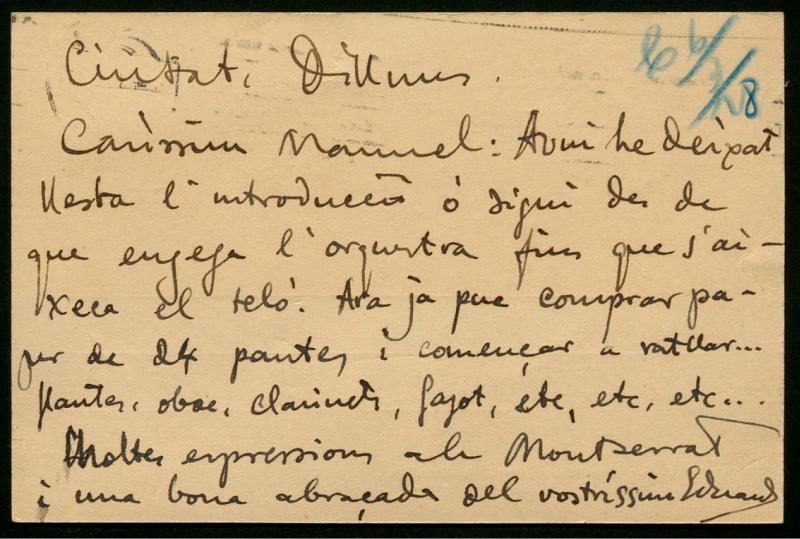 Ciutat, Dilluns.
6/3/28
Caríssim Manuel: Avui he deixat
llesta l'introducció ó sigui des de
que engega l'orquestra fins que s'ai-
xeca el teló. Ara ja puc comprar pa-
per de 24 pautes i començar a ratllar...
flautes, oboe, clarinets, fagot, etc, etc, etc...
Moltes expressions a la Montserrat
i una bona abraçada del vostríssim Eduard